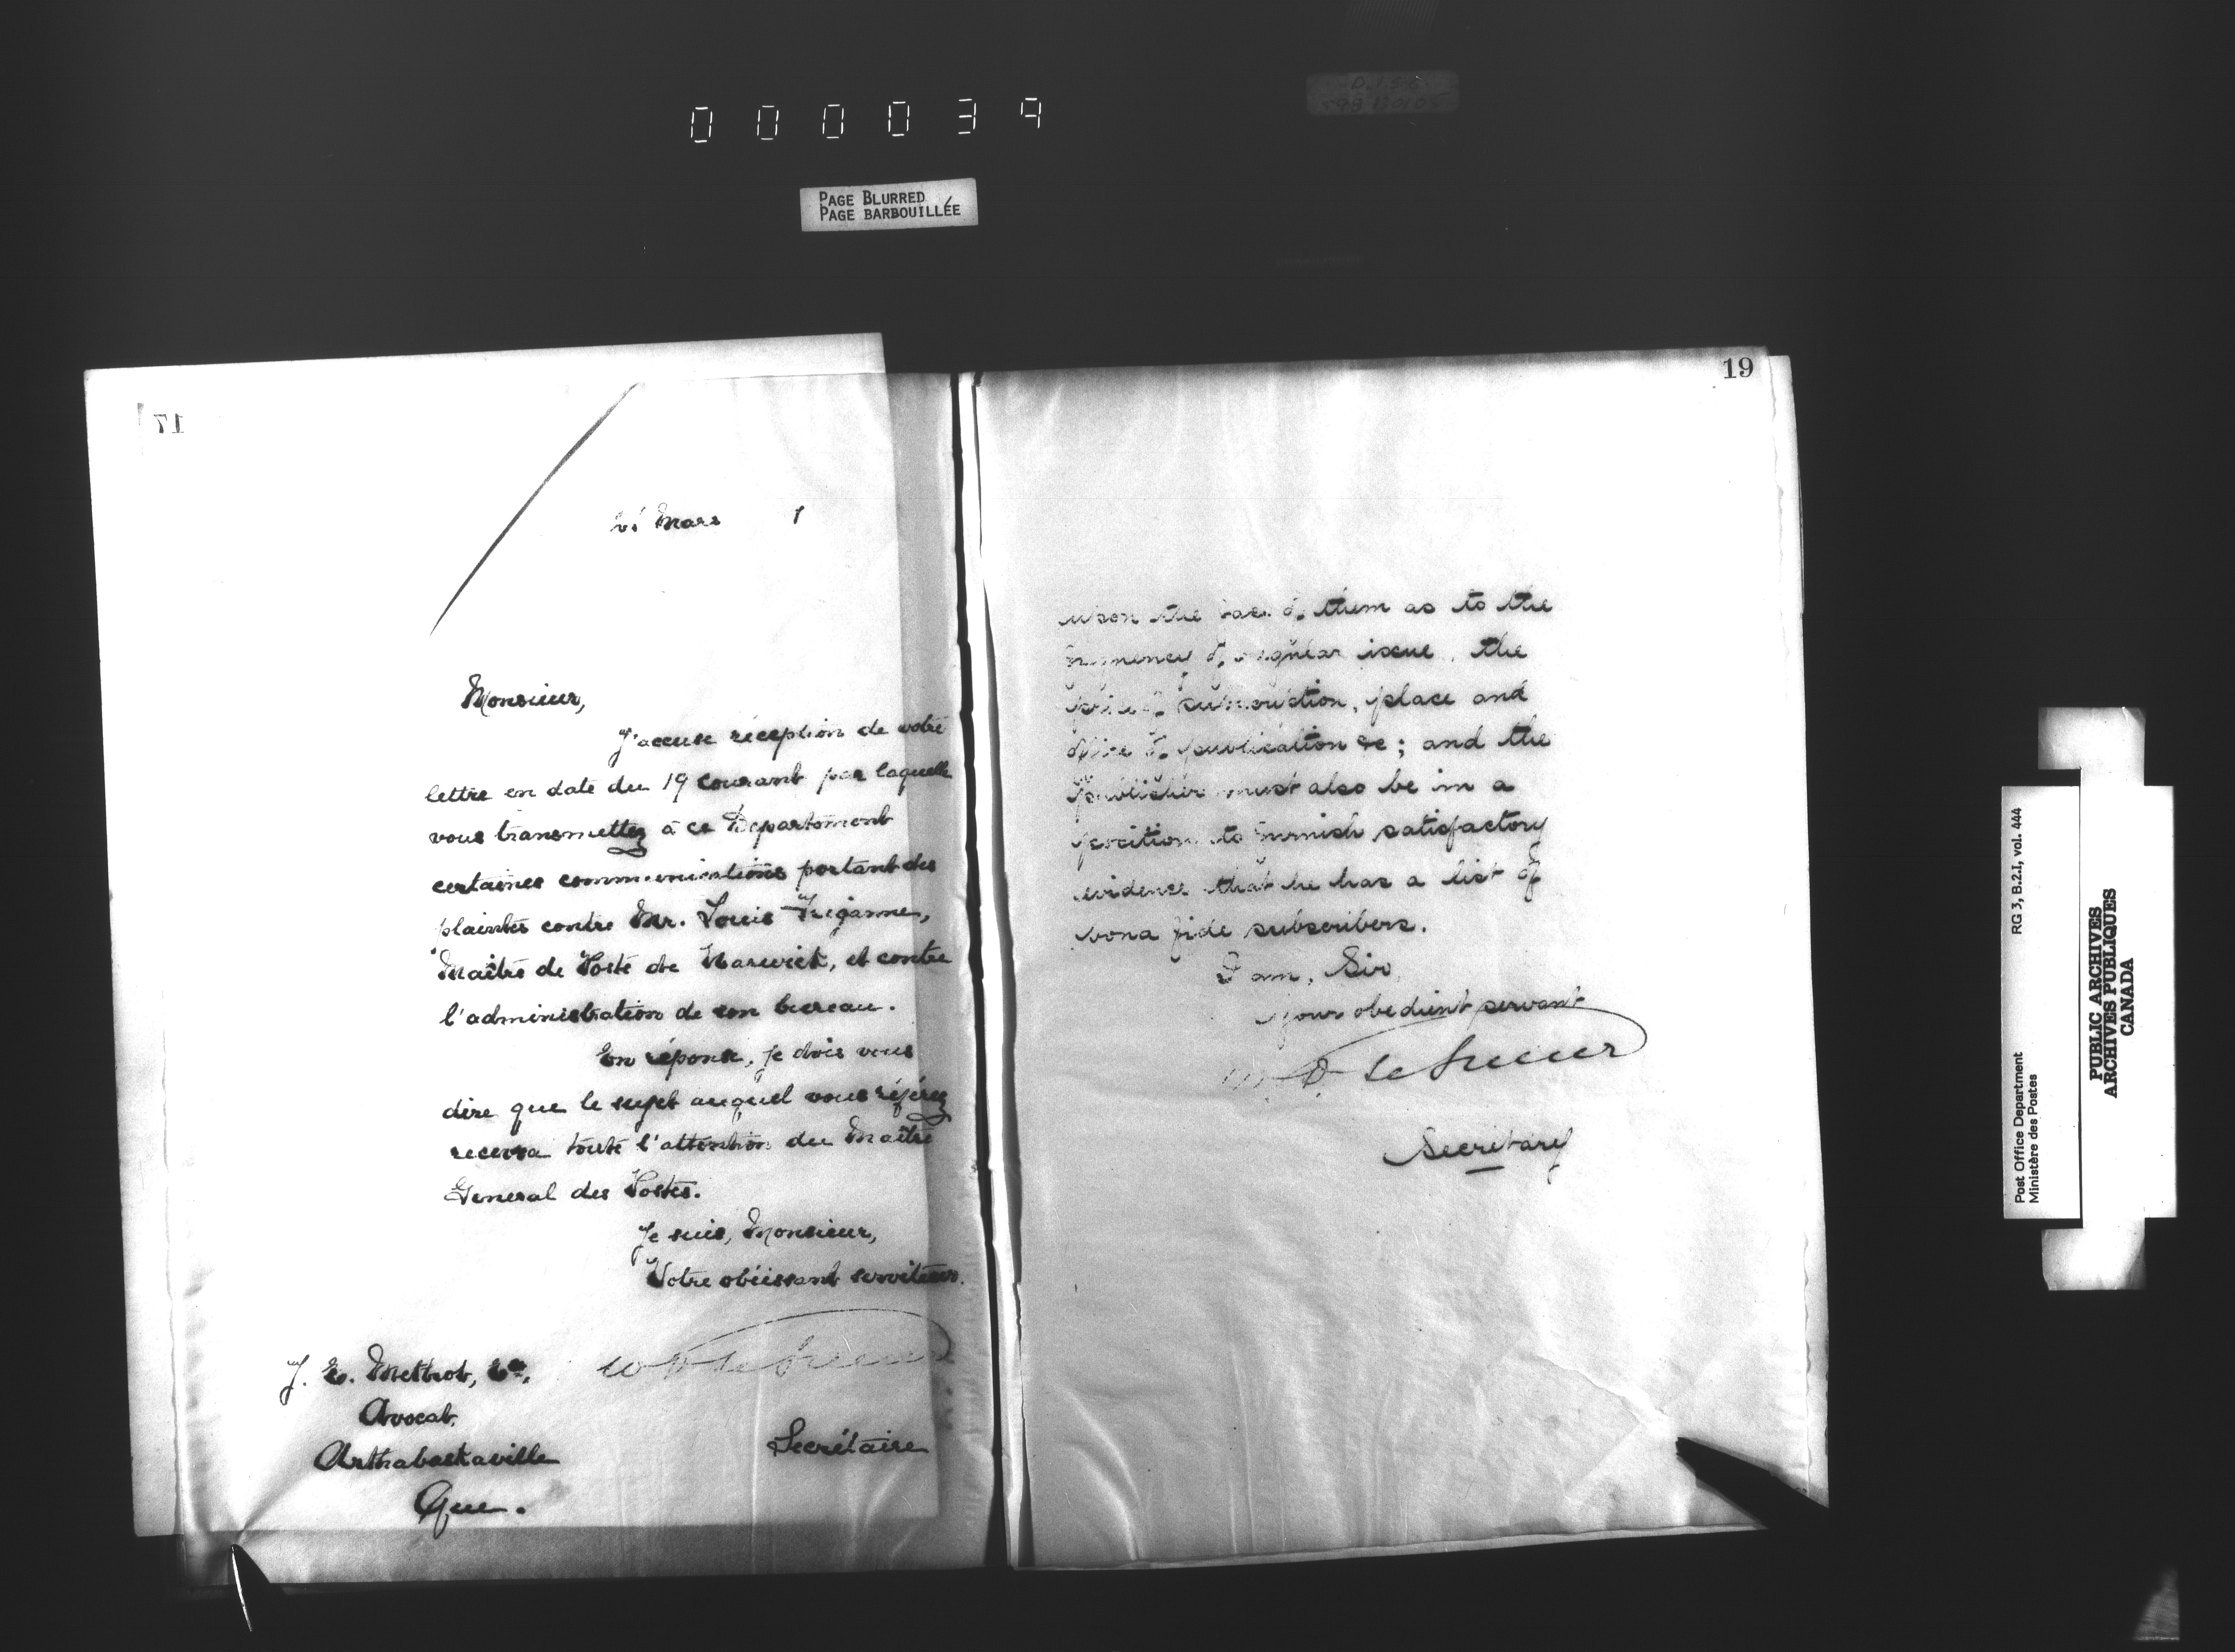 000039
PAGE BLURRED
PAGE BARBOUILLÉE
17
21 Mars 1
Monsieur,
J'accuse réception de votre
lettre en date du 19 courant par laquelle
vous transmettez à ce Departement
certaines communications portant des
plaintes contre Mr. Louis
Maître de Poste de Warwick, et contre
l'administration de son bureau.
En réponse, je dois vous
dire que le sujet auquel vous référez
recevra toute l'attention du Maître
General des Postes.
Je suis, Monsieur,
Votre obéissant serviteur.
J. E. Methot, Er.,
Avocat,
Arthabaskaville
Que.
Secrétaire
19
upon the face of them as to the
frequency of regular issue, the
price of subscription, place and
office of publication &c; and the
publisher must also be in a
position to furnish satisfactory
evidence that he has a list of
bona fide subscribers.
I am, Sir
your obedient servant
W D LeSueur
Secretary
RG 3, B.2.I, vol. 444
Post Office Department
Ministère des Postes
PUBLIC ARCHIVES
ARCHIVES PUBLIQUES
CANADA